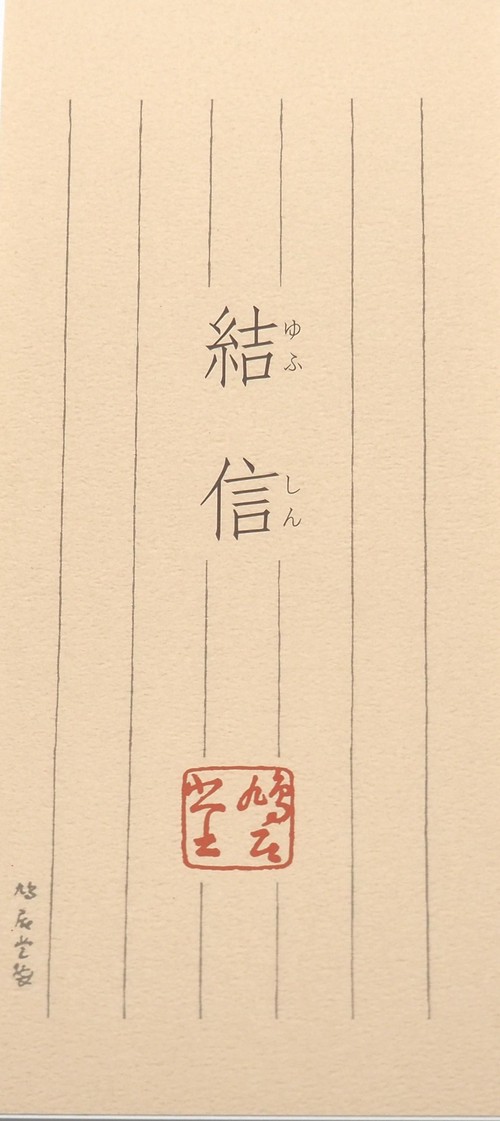 結信
ゆふしん
鳩居堂
鳩居堂製